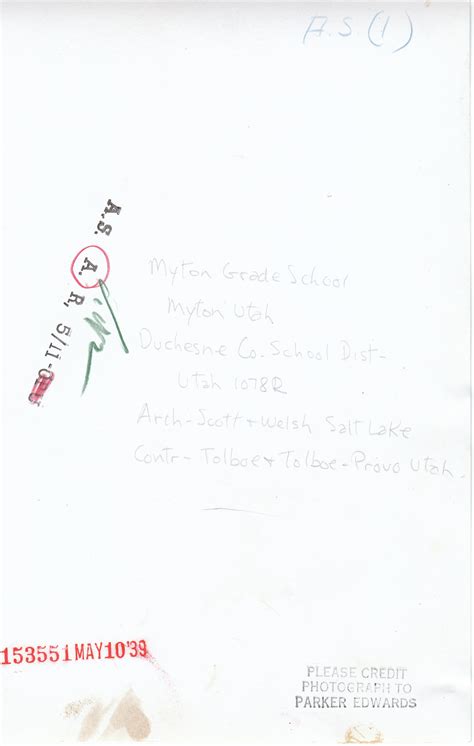 A.S (1)
A.S. A. R, 5/11-
Myton Grade School
Myton Utah
Duchesne Co. School Dist-
Utah 1078R
Arch-Scott + Welsh Salt Lake
Contr- Tolboe + Tolboe-Provo Utah.
153551 MAY 10'39
PLEASE CREDIT
PHOTOGRAPH TO
PARKER EDWARDS